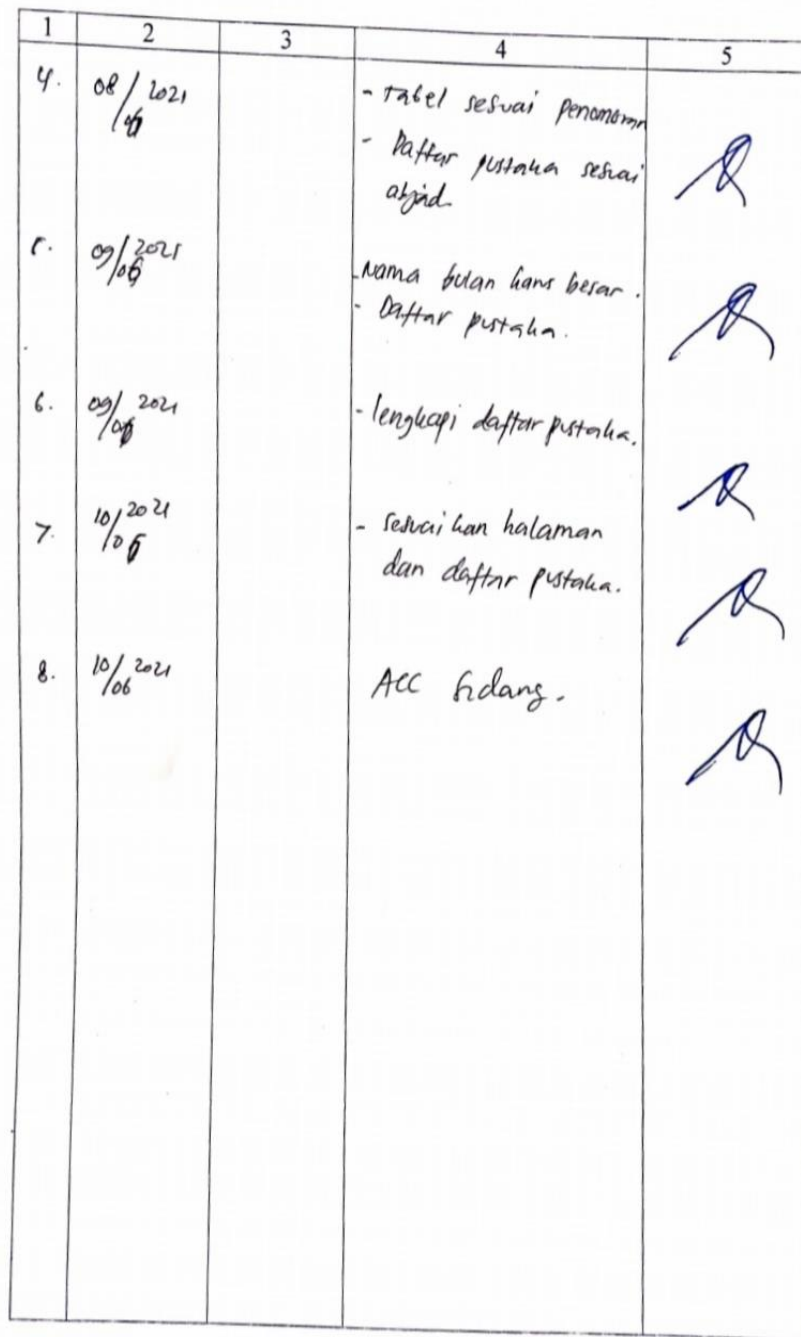 1 2 3 4 5
4. 08/06 2021 - Tabel sesuai penomoran
- Daftar pustaka sesuai
abjad
5. 09/06 2021 - Nama bulan harus besar.
- Daftar pustaka.
6. 09/06 2021 - lengkapi daftar pustaka.
7. 10/06 2021 - sesuaikan halaman
dan daftar pustaka.
8. 10/06 2021 ACC Sidang.